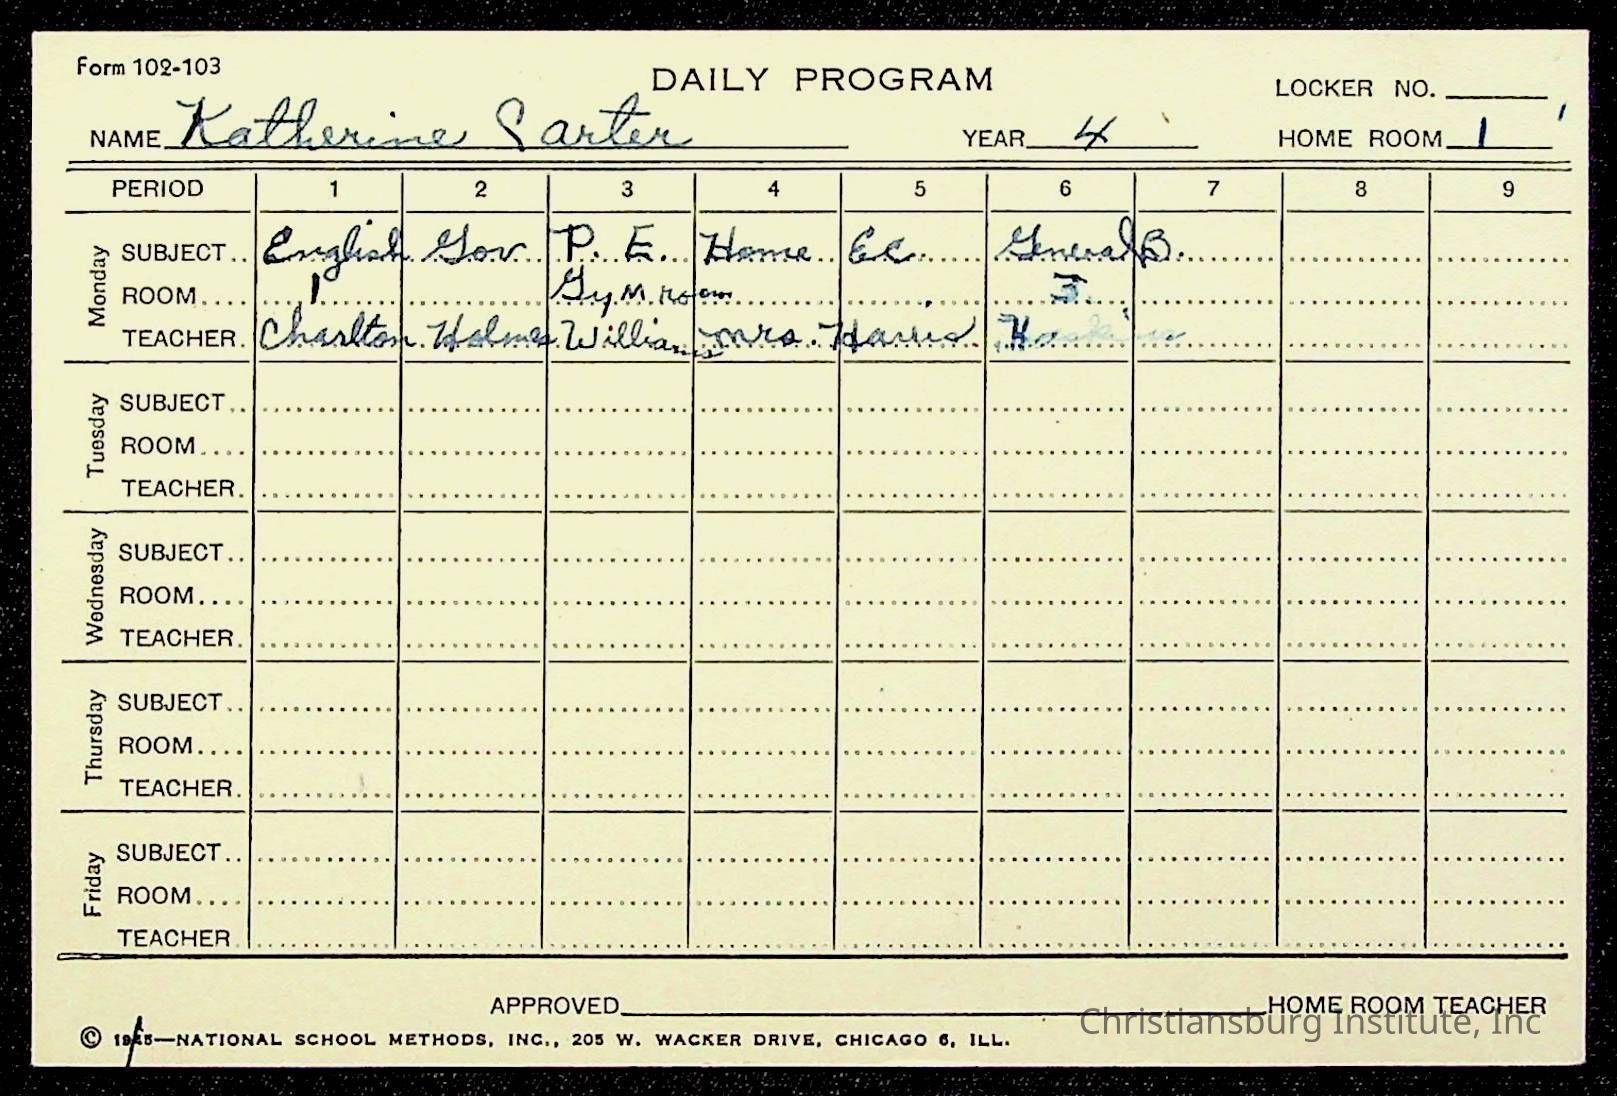 Form 102-103
DAILY PROGRAM
LOCKER NO.
NAME Katherine Carter YEAR 4 HOME ROOM 1
PERIOD 1 2 3 4 5 6 7 8 9
Monday
SUBJECT English Gov P. E. Home Ec. General B.
ROOM 1 Gym room 3
TEACHER Charlton Holmes Williams Mrs. Harris Haskins
Tuesday
SUBJECT
ROOM
TEACHER
Wednesday
SUBJECT
ROOM
TEACHER
Thursday
SUBJECT
ROOM
TEACHER
Friday
SUBJECT
ROOM
TEACHER
APPROVED HOME ROOM TEACHER
Christiansburg Institute, Inc
© —NATIONAL SCHOOL METHODS, INC., 205 W. WACKER DRIVE, CHICAGO 6, ILL.